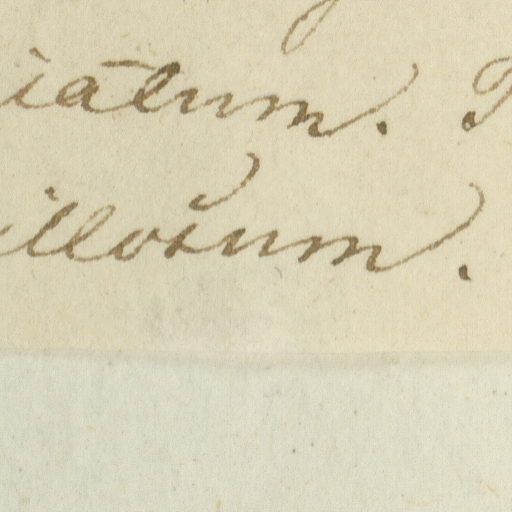 iatum.
illosum.